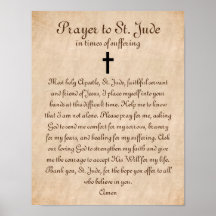 Prayer to St. Jude
in times of suffering
Most holy Apostle, St. Jude, faithful servant
and friend of Jesus, I place myself into your
hands at this difficult time. Help me to know
that I am not alone. Please pray for me, asking
God to send me comfort for my sorrow, bravery
for my fears, and healing for my suffering. Ask
our loving God to strengthen my faith and give
me the courage to accept His Will for my life.
Thank you, St. Jude, for the hope you offer to all
who believe in you.
Amen